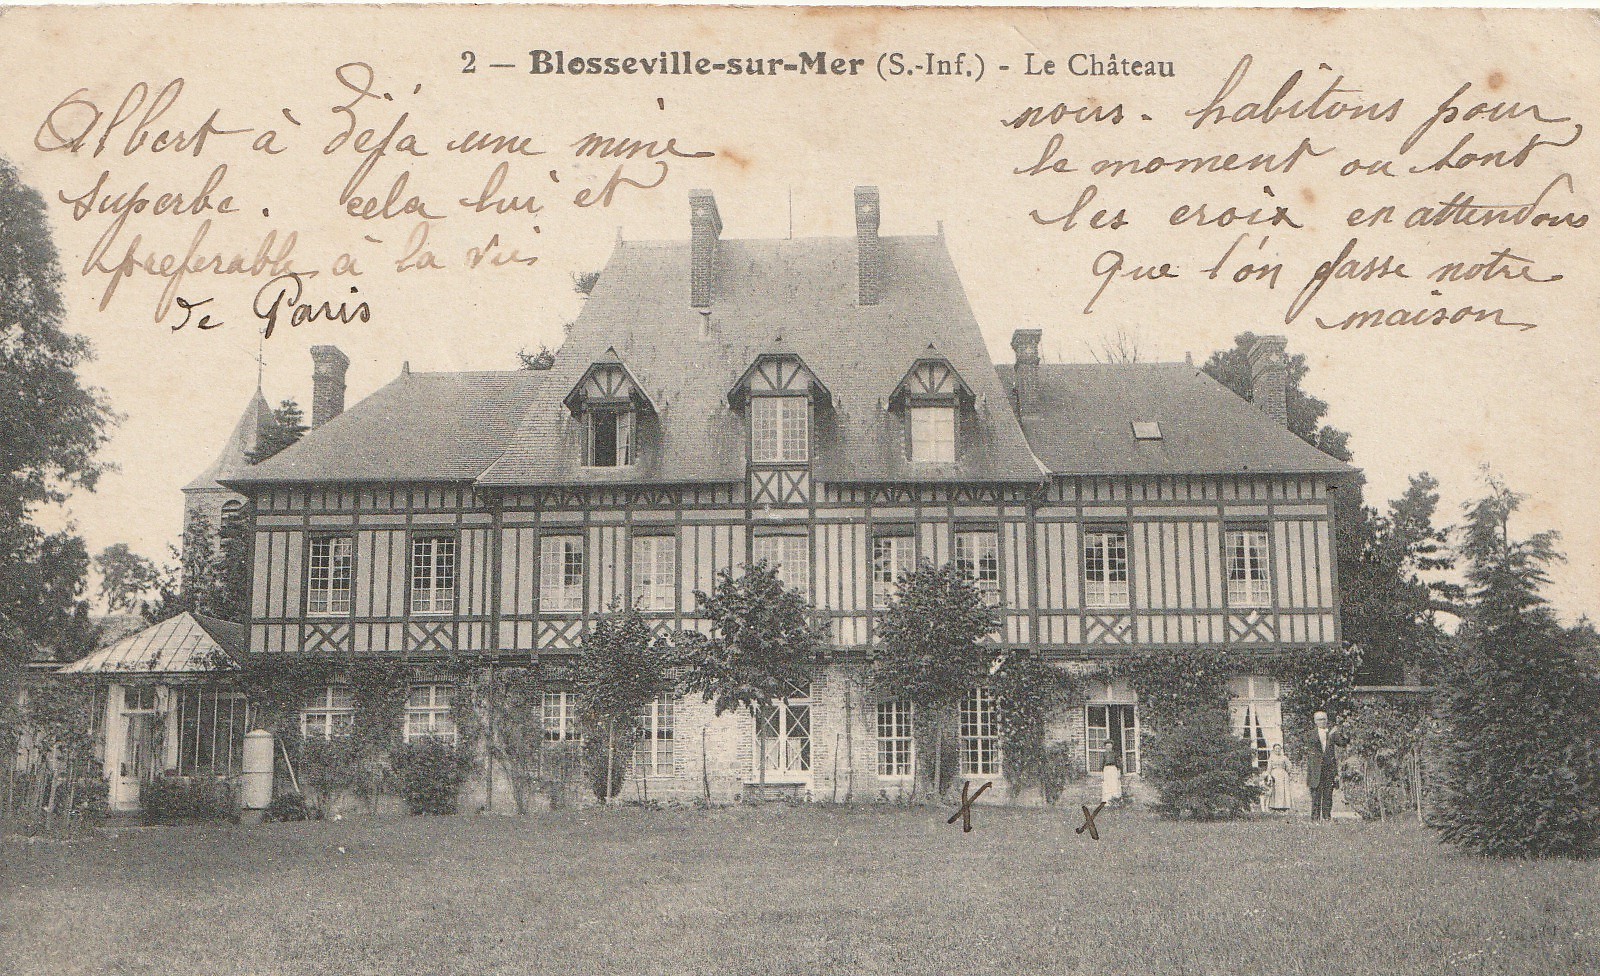 2 — Blosseville-sur-Mer (S.-Inf.) - Le Château
Albert à déjà une mine
superbe. cela lui et
preferable à la vie
de Paris
nous. habitons pour
le moment ou sont
les croix en attendons
que l'on fasse notre
maison
X X